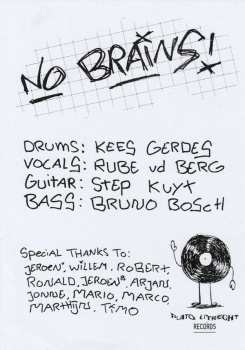 NO BRAINS!
DRUMS: KEES GERDES
VOCALS: RUBE vd BERG
GUITAR: STEP KUYT
BASS: BRUNO BOSCH
SPECIAL THANKS TO:
JEROEN, WILLEM, ROBERT,
RONALD, JEROEN, ARJAN,
JONNE, MARIO, MARCO,
MARTHIJN, TIMO
PLATO UTRECHT
RECORDS